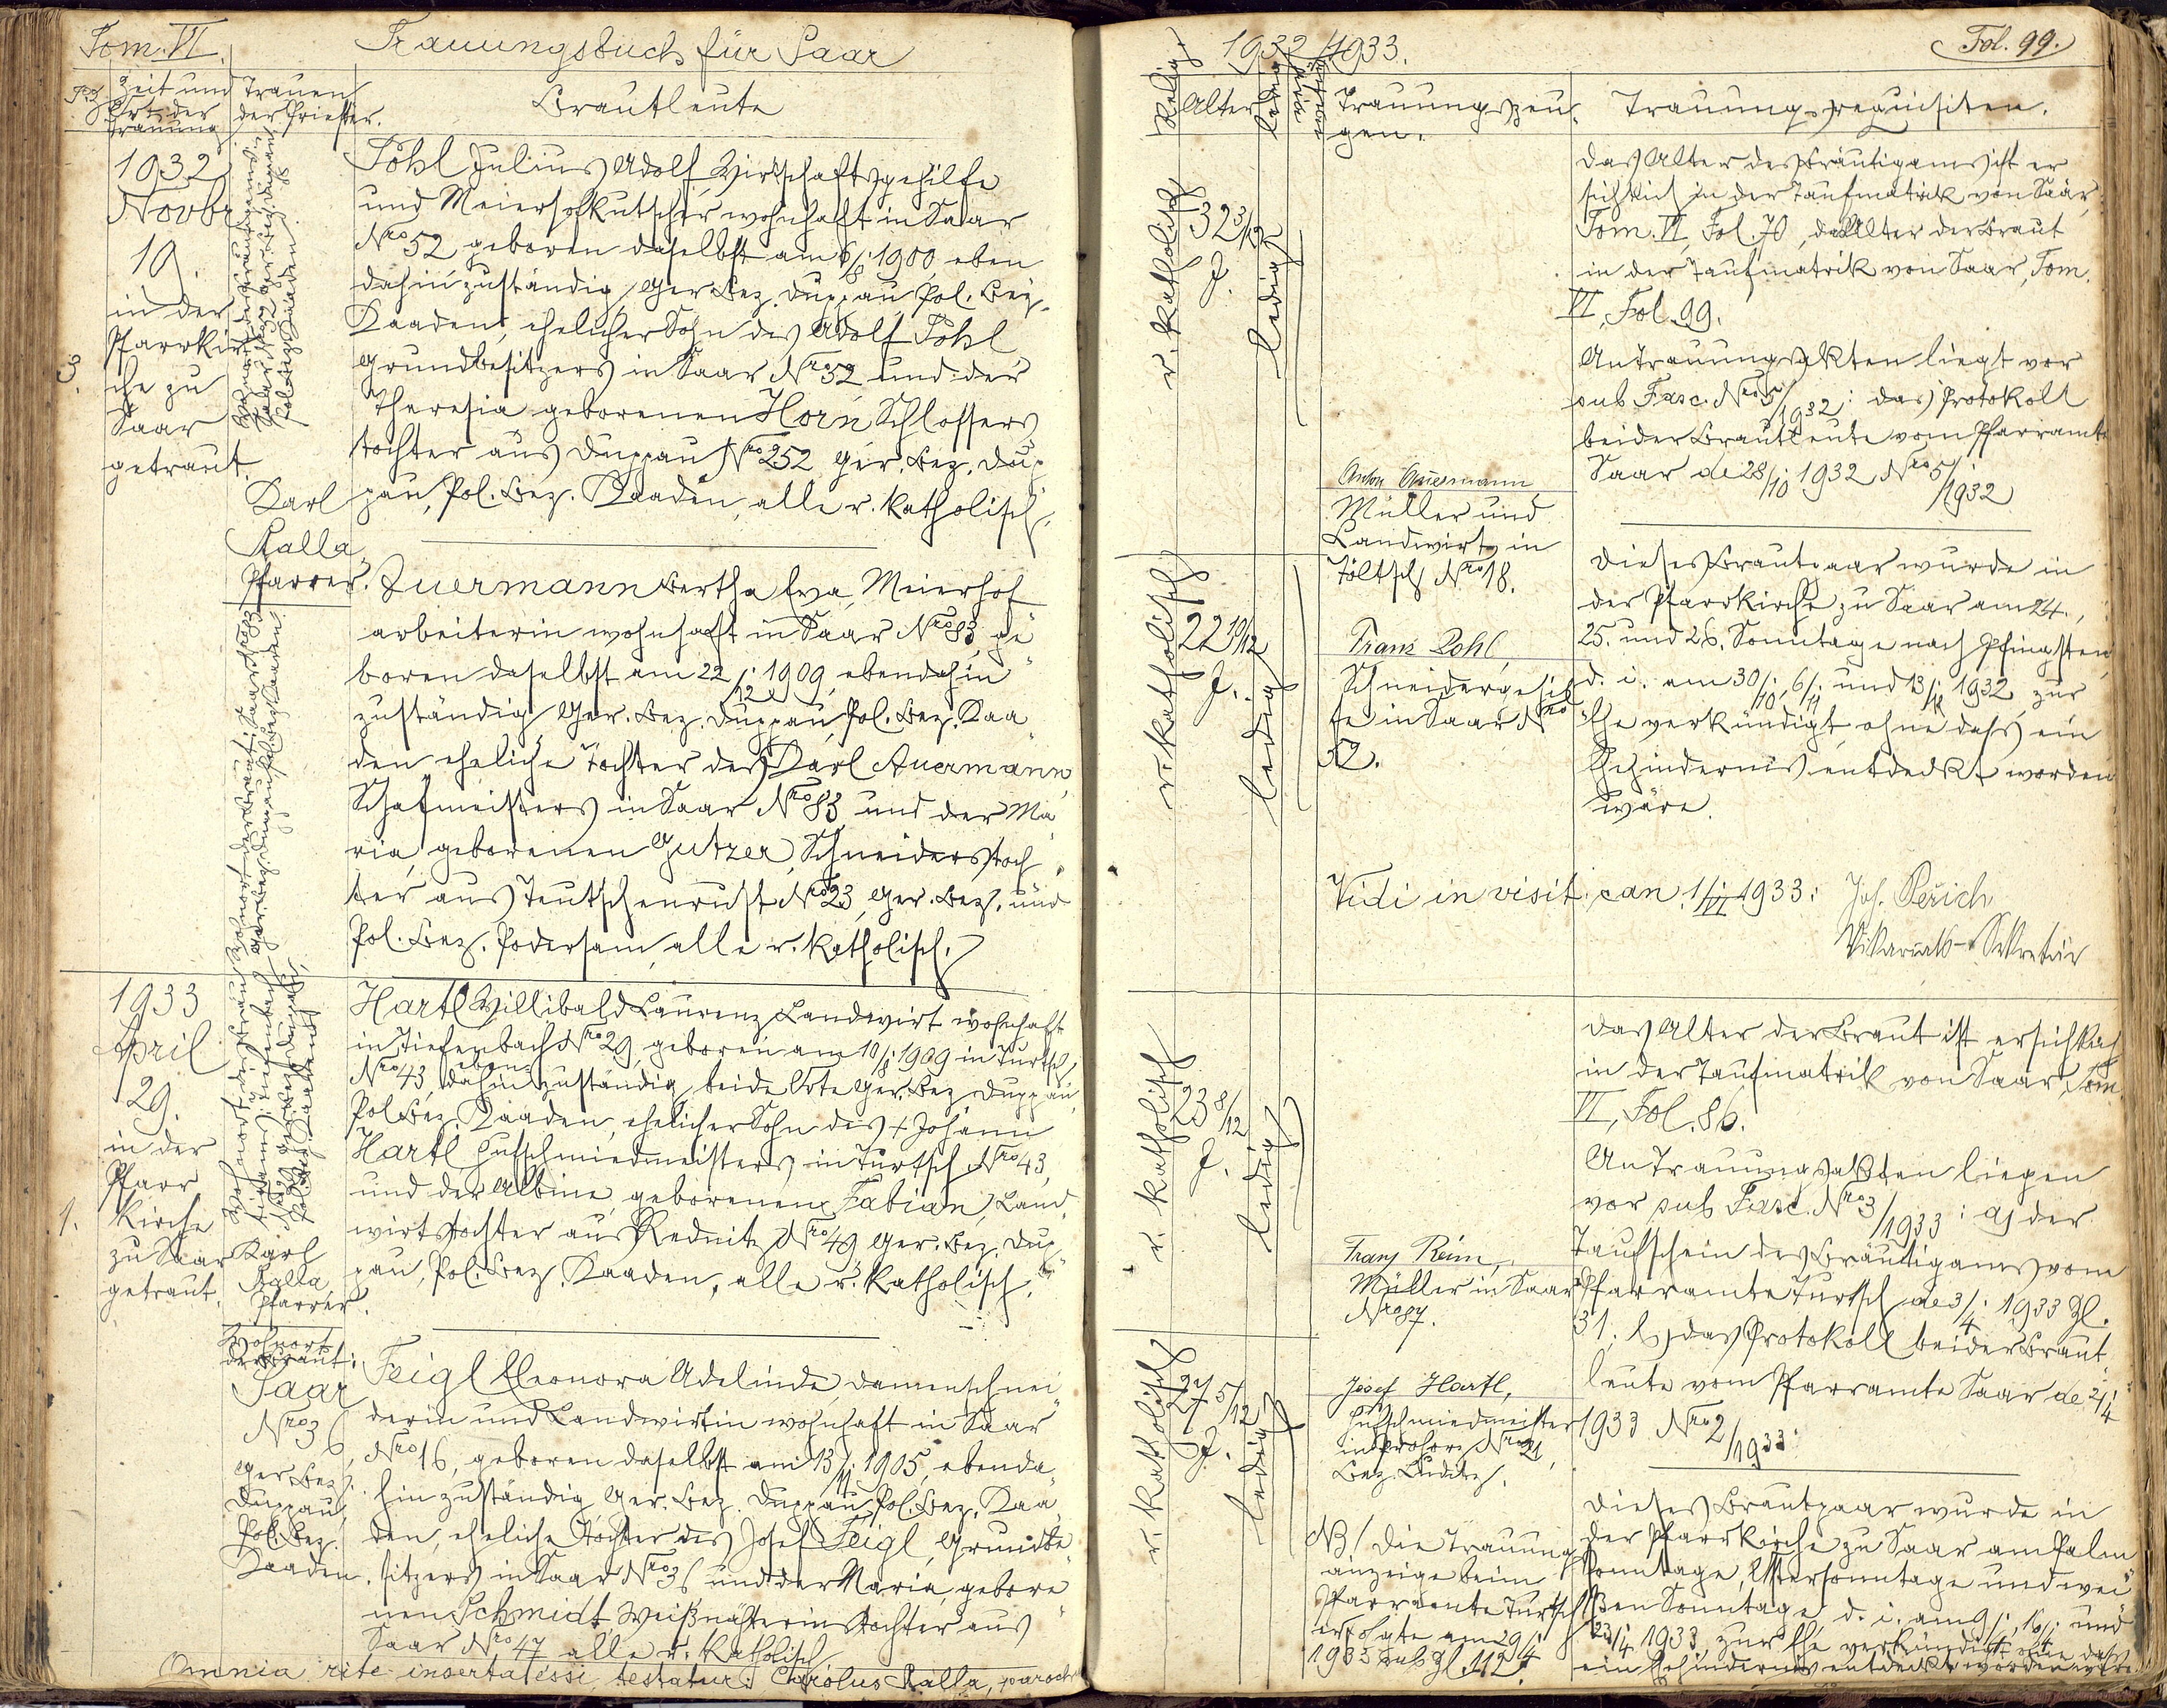 Tom. VI.
Trauungsbuch für Saar
P. Z.
Zeit und
Ort der
Trauung
Trauen
der Priester.
Brautleute
3.
1932
Novbr
19.
in der
Pfarrkir
che zu
Saar
getraut.
Karl
Kalla,
Pfarrer.
Pöhl Julius Adolf, Wirtschaftsgehilfe
und Meierhofkutscher wohnhaft in Saar
Nro 52 geboren daselbst am 6/8. 1900, eben
dahin zuständig, Ger. Bez. Duppau, Pol. Bez.
Kaaden, ehelicher Sohn des Adolf Pöhl
Grundbesitzers in Saar Nro 52 und der
Theresia geborenen Horn Schlossers
tochter aus Duppau Nro 252 Ger. Bez. Dup
pau, Pol. Bez. Kaaden, alle r. katholisch.
Auermann Bertha Eva, Meierhof
arbeiterin wohnhaft in Saar Nro 83, ge
boren daselbst am 22/12. 1909, ebendahin
zuständig, Ger. Bez. Duppau, Pol. Bez. Kaa
den eheliche Tochter des Karl Auermann,
Schafmeisters in Saar Nro 83 und der Ma
ria, geborenen Gutzer, Schneiderstoch
ter aus Teutschenrust Nro 23, Ger. Bez. und
Pol. Bez. Podersam, alle r. katholisch.
1.
1933
April
29.
in der
Pfarr
kirche
zu Saar
getraut.
Karl
Kalla,
Pfarrer.
Wohnort
der Braut:
Saar
Nro 36,
Ger. Bez.
Duppau,
Pol. Bez.
Kaaden.
Hartl Willibald Laurenz Landwirt wohnhaft
in Tiefenbach Nro 29, geboren am 10/8. 1909 in Turtsch,
Nro 43, eben dahin zuständig, beide Orte Ger. Bez. Duppau,
Pol. Bez. Kaaden, ehelicher Sohn des + Johann
Hartl Hufschmiedmeisters in Turtsch Nro 43,
und der Albine, geborenen Fabian, Land
wirtstochter aus Rednitz Nro 49 Ger. Bez. Dup
pau, Pol. Bez. Kaaden, alle r. katholisch.
Feigl Eleonora Adelinde, Damenschnei
derin und Landwirtin wohnhaft in Saar
Nro 16, geboren daselbst am 13/11. 1905, ebenda
hin zuständig Ger. Bez. Duppau, Pol. Bez. Kaa
den, eheliche Tochter des Josef Feigl, Grundbe
sitzers in Saar Nro 36 und der Maria, gebore
nen Schmidt, Weißnähterinstochter aus
Saar Nro 47 alle r. katholisch
Omnia rite inserta esse, testatur: Carolus Kalla, paroch
1932/1933.
Fol. 99.
Relig.
Alter
ledig
Trauungszeu
gen.
Trauungsrequisiten.
r. katholisch
32 3/12
J.
ledig
Anton Auermann
Müller und
Landwirt in
Töltsch Nro 18.
Das Alter des Bräutigams ist er
sichtlich in der Taufmatrik von Saar,
Tom. VI, Fol. 70, das Alter der Braut
in der Taufmatrik von Saar, Tom.
VI, Fol. 99.
An Trauungsakten liegt vor
sub Fasc. Nro 5/1932: das Protokoll
beider Brautleute vom Pfarramte
Saar de 28/10. 1932 Nro 5/1932
r. katholisch
22 10/12
J.
ledig
Franz Pohl,
Schneidergehil
fe in Saar Nro
52.
Dieses Brautpaar wurde in
der Pfarrkirche zu Saar am 24.,
25. und 26. Sonntage nach Pfingsten,
d. i. am 30/10., 6/11. und 13/11. 1932 zur
Ehe verkündigt ohne dass ein
Ehehindernis entdeckt worden
wäre.
Vidi in visit. can. 1/VI 1933:
Joh. Peřich
Vikariats-Sekretär
r. katholisch
23 8/12
J.
ledig
Franz Reim,
Müller in Saar
Nro 87.
Das Alter der Braut ist ersichtlich
in der Taufmatrik von Saar, Tom
VI, Fol. 86.
An Trauungsakten liegen
vor sub Fasc. Nro 3/1933: a) der
Taufschein des Bräutigams vom
Pfarramte Turtsch de 3/4. 1933 Zl.
31; b) das Protokoll beider Braut
leute vom Pfarramte Saar de 2/4.
1933 Nro 2/1933.
r. katholisch
27 5/12
J.
ledig
Josef Hartl,
Hufschmiedmeister
Nro 21,
NB! Die Trauungs
anzeige beim
Pfarramte Turtsch
erfolgte am 29/4.
1933 sub Zl. 112.
Dieses Brautpaar wurde in
der Pfarrkirche zu Saar am Palm
sonntage, Ostersonntage und wei
ßen Sonntage d. i. am 9/4., 16/4. und
23/4. 1933 zur Ehe verkündigt ohne dass
ein Ehehindernis entdeckt worden wäre.